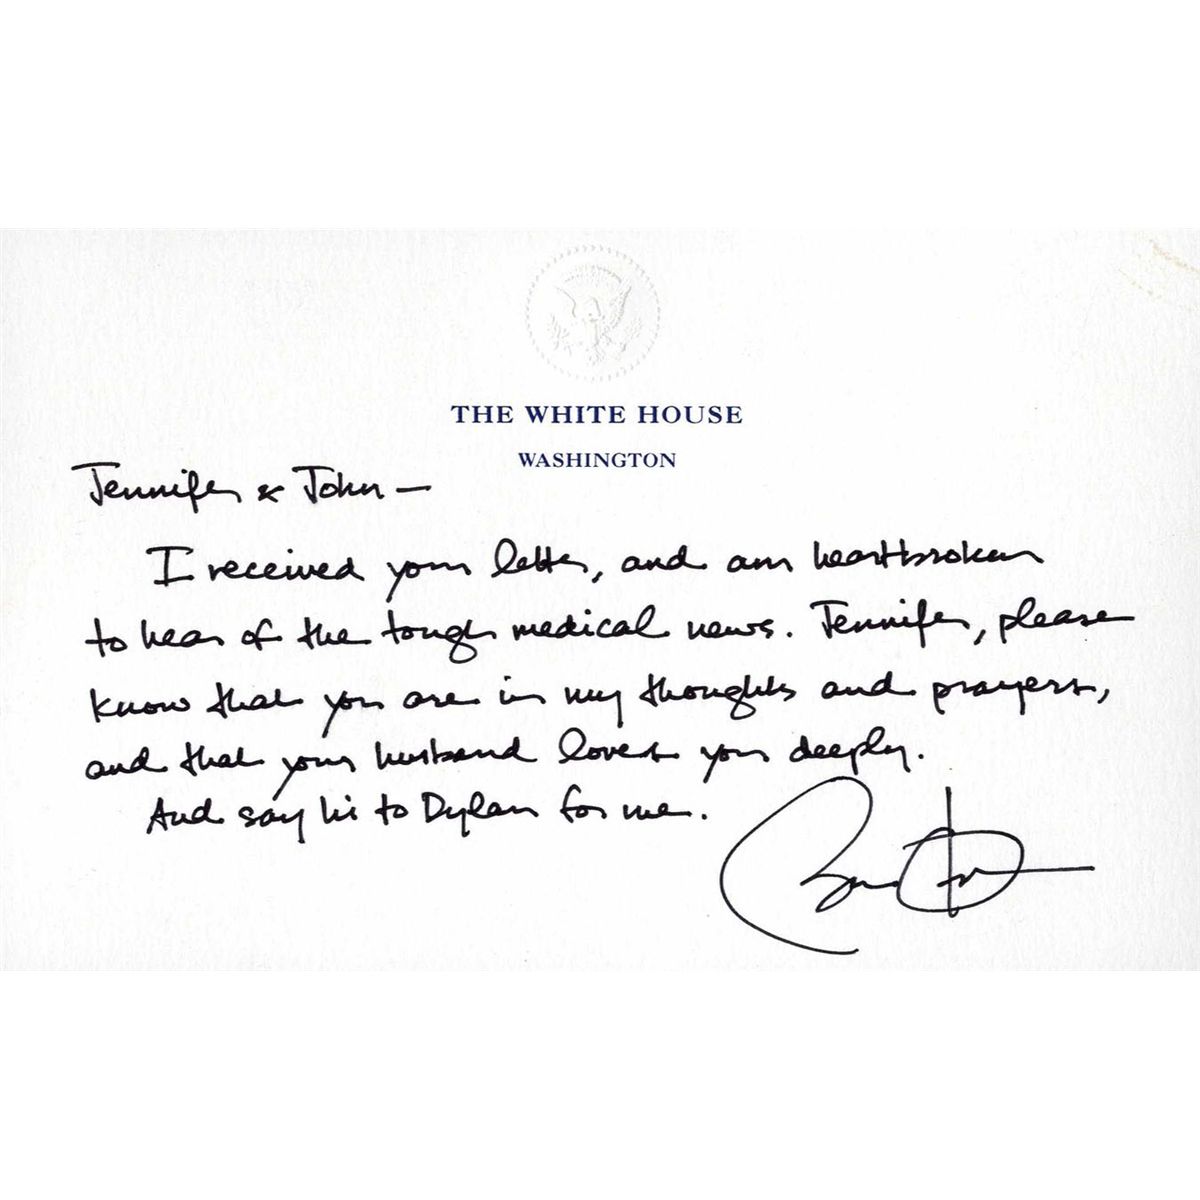 THE WHITE HOUSE
WASHINGTON
Jennifer & John —
I received your letter, and am heartbroken
to hear of the tough medical news. Jennifer, please
know that you are in my thoughts and prayers,
and that your husband loves you deeply.
And say hi to Dylan for me.